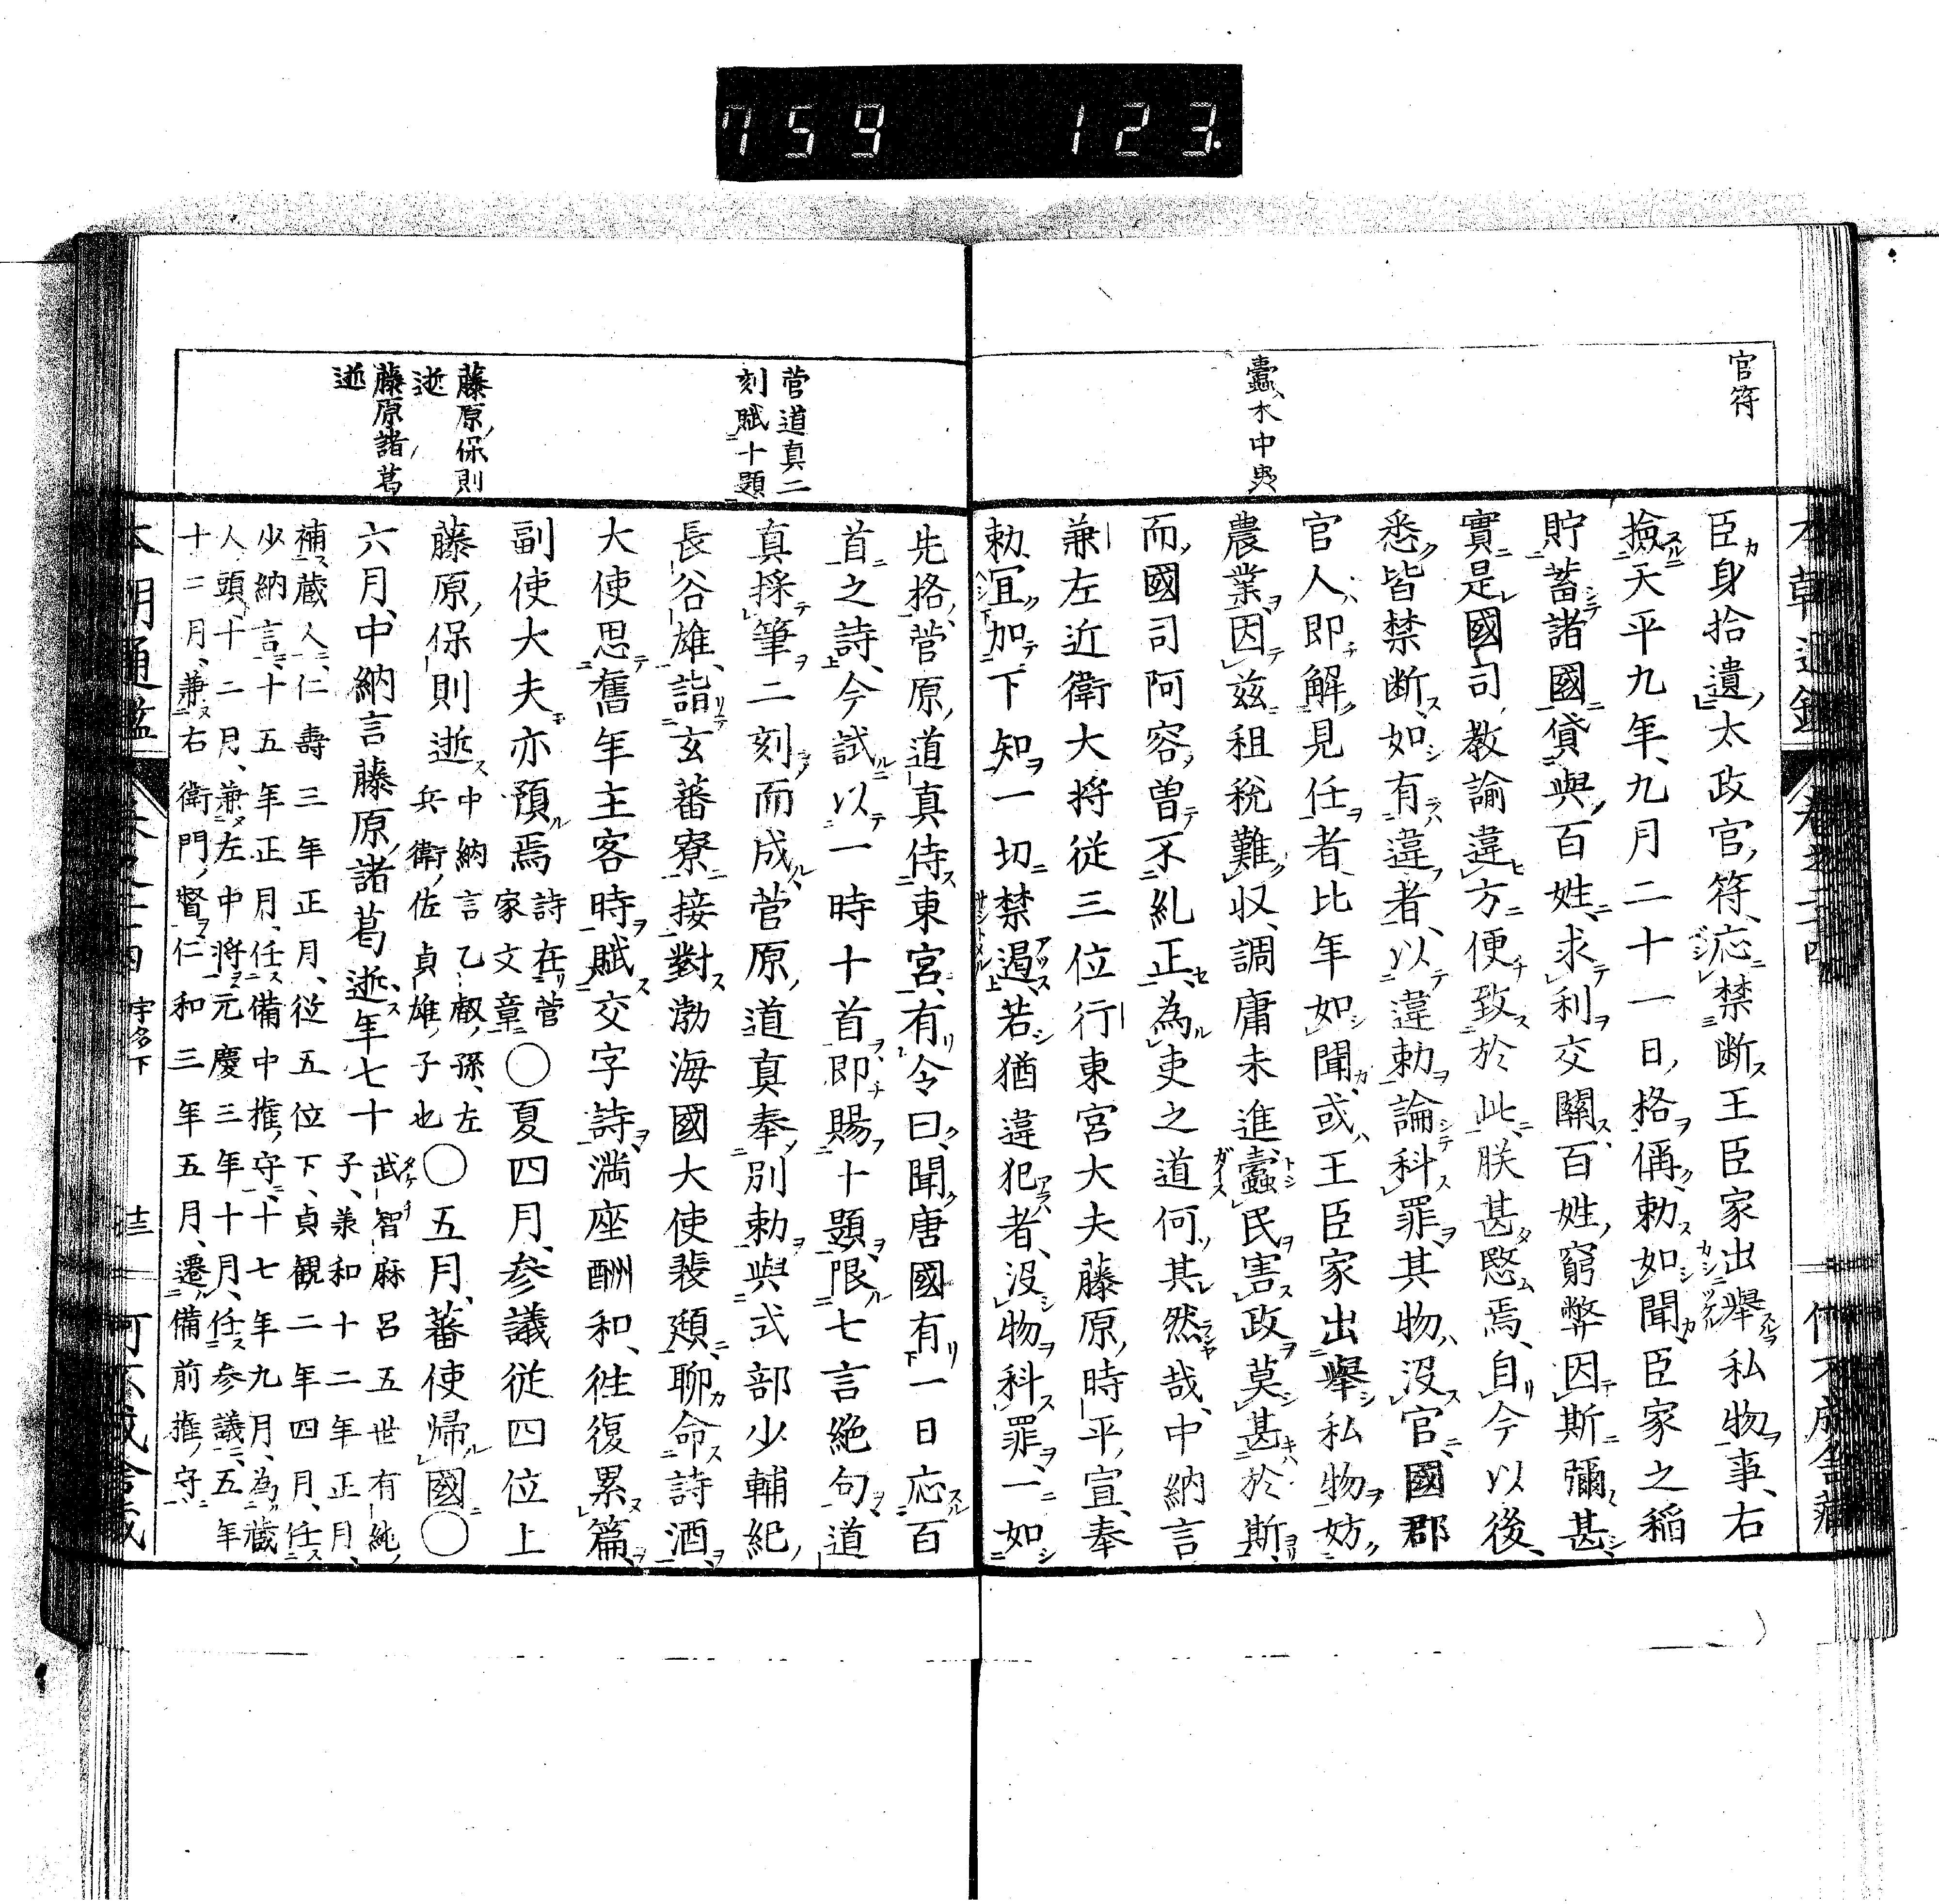 759 123.
官符
蠹木中蟲
臣身拾遺太政官符、応禁断王臣家出擧私物事、右
撿天平九年九月二十一日格偁、勅如聞臣家之稲
貯蓄諸國貸與百姓、求利交關百姓窮弊因斯彌甚
實是國司教諭違方便致於此朕甚愍焉、自今以後、
悉皆禁断、如有違者、以違勅論科罪、其物没官、國郡
官人即解見任者、比年如聞或王臣家出擧私物妨
農業因茲租税難収、調庸未進、蠹民害政莫甚於斯、
而國司阿容曽不糺正、為吏之道何其然哉、中納言
兼左近衛大将従三位行東宮大夫藤原時平宣、奉
勅、宜加下知一切禁遏、若猶違犯者、没物科罪、一如
菅道真二
刻賦十題
藤原保則
逝
藤原諸葛
逝
先格、菅原道真侍東宮、有令曰、聞唐國有一日応百
首之詩、今試以一時十首、即賜十題、限七言絶句、道
真採筆二刻而成、菅原道真奉別勅與式部少輔紀
長谷雄、詣玄蕃寮接對渤海國大使裴頲、聊命詩酒、
大使思舊年主客時賦交字詩、満座酬和、徃復累篇、
副使大夫亦預焉 詩在菅
家文章 ○夏四月、参議従四位上
藤原保則逝 中納言乙叡孫、左
兵衛佐貞雄子也 ○五月、蕃使帰國○
六月、中納言藤原諸葛逝年七十 武智麻呂五世有純
子、兼和十二年正月、
補蔵人、仁壽三年正月、従五位下、貞観二年四月、任
少納言、十五年正月、任備中権守、十七年九月、為蔵
人頭、十二月、兼左中将、元慶三年十月、任参議、五年
十二月、兼右衛門督、仁和三年五月、遷備前権守
本朝通鑑
宇多下